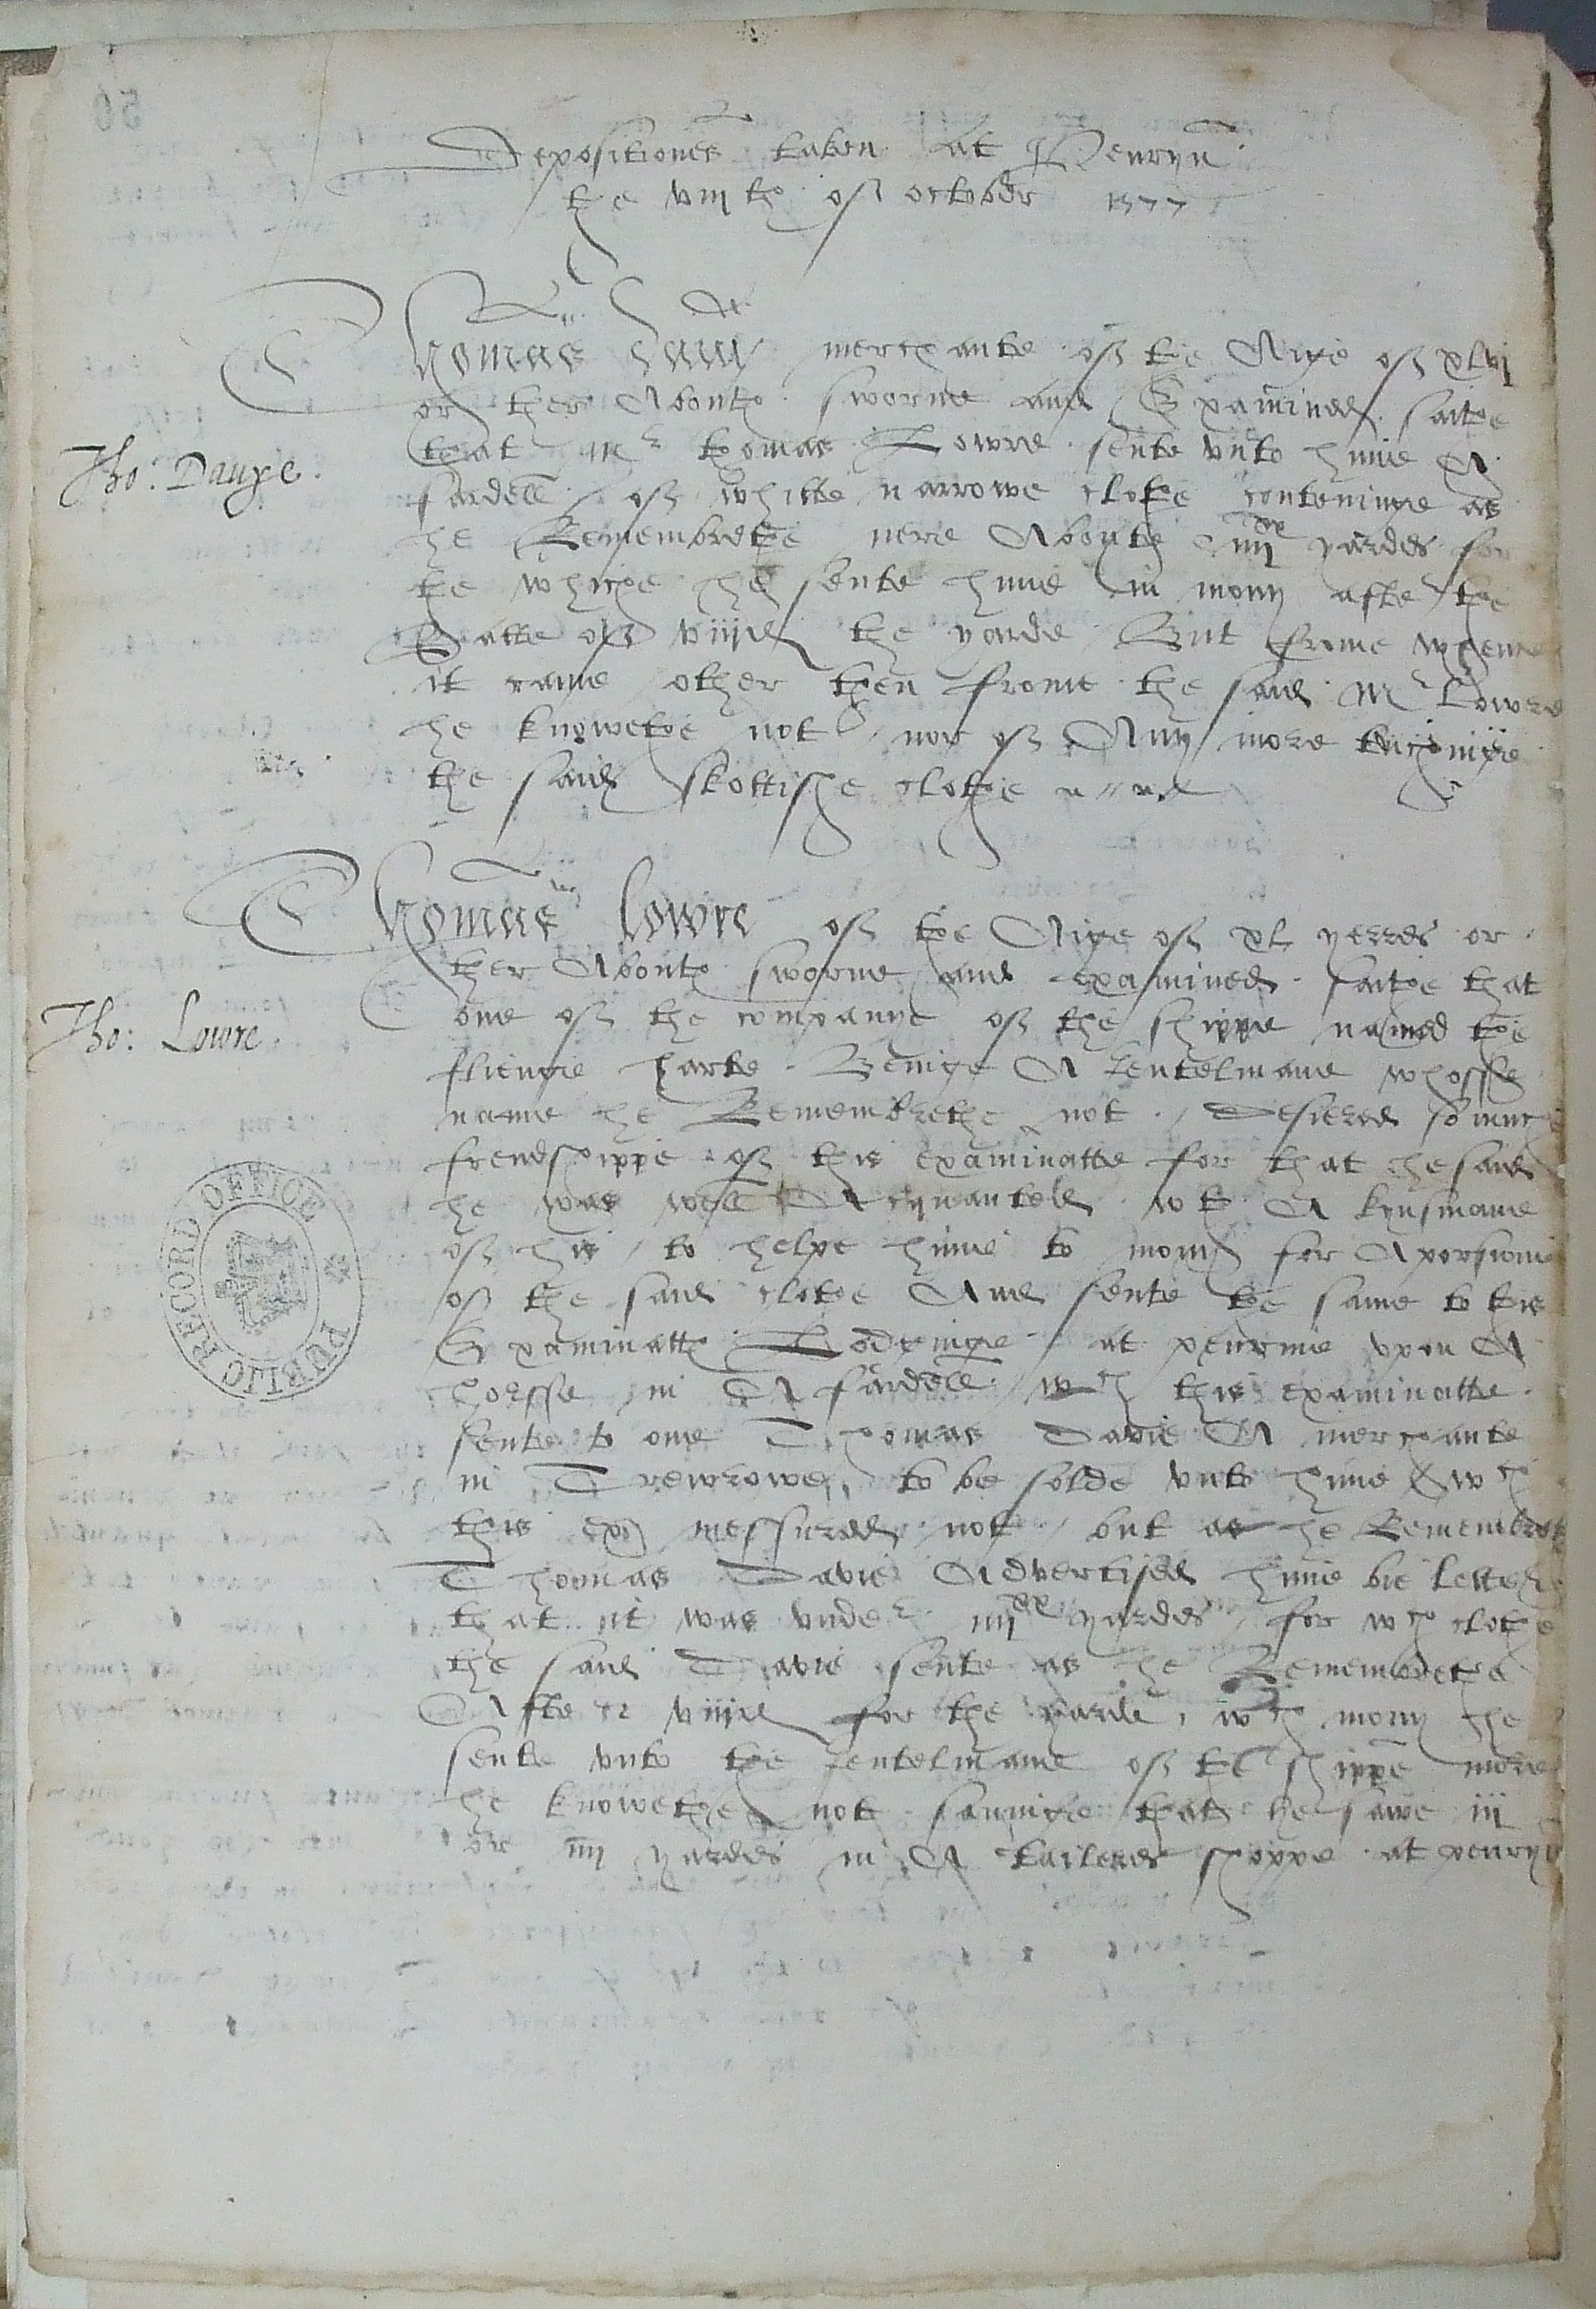 Depositiones taken at Penryn
the viijth of october 1577
Thomas Davy merchante of the Aige of xlvj
or ther Aboute sworne and Examined saithe
that Mr thomas Lowre sente unto hime A
Tho: Dauye.
fardell of whitte narrowe clothe conteninge as
he Remembrethe nere Aboute iiijxx yardes for
the whiche he sente hime in mony after the
Ratte of viijd the yarde But frome whence
it came other then frome the said Mr Lowre
he knowethe not nor of Any more tuchinge
the said skottishe clothe
Thomas Lowre of the Aige of xl yeeres or
ther Aboute sworne and examined saithe that
Tho: Lowre.
one of the companye of the shippe named the
flienge harte Beinge A Jentelmane whosse
name he Remembrethe not desiered so muche
frendshippe of this examinatte for that he said
he was well Acquanted wt A kynsmane
of his to helpe hime to mony for A porsione
of the said clothe And sente the same to this
Examinatts Lodginge at penrine upon A
horsse in A fardell wch this examinatte
sente to one Thomas Davie A merchante
in Trewrowe to be solde unto hime & wch
this exa messured not but as he Remembreth
Thomas Davie Advertised hime bie letter
that it was under iiijxx yardes for wch clothe
the said Davie sente as he Remembrethe
After viijd for the yarde, wch mony he
sente unto the Jentelmane of the shippe more
he knowethe not savinge that he sawe iij
or iiij yardes in A tailers shoppe at penryn
PUBLIC RECORD OFFICE